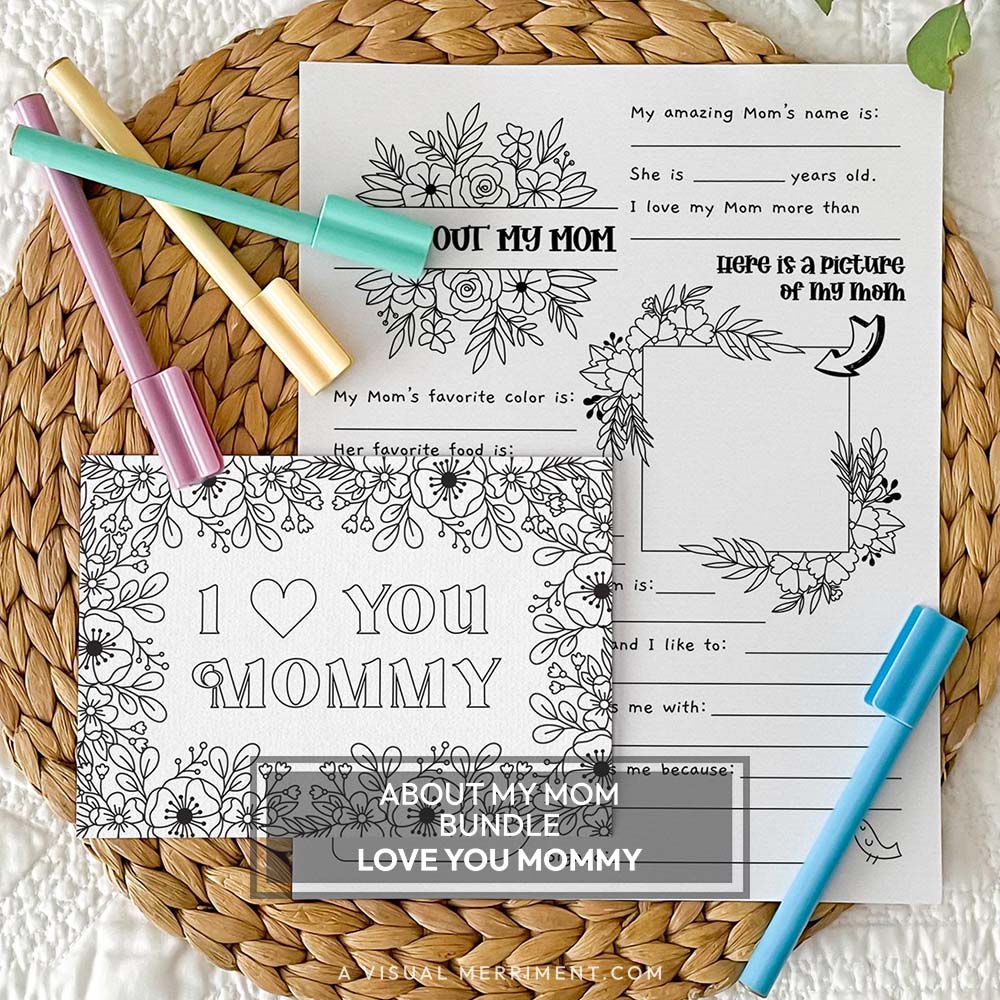 My amazing Mom's name is:
She is ________ years old.
I love my Mom more than
OUT MY MOM
Here is a picture
of my mom
My Mom's favorite color is:
Her favorite food is:
is:
and I like to:
me with:
me because:
I ♡ YOU
MOMMY
ABOUT MY MOM
BUNDLE
LOVE YOU MOMMY
A VISUAL MERRIMENT.COM